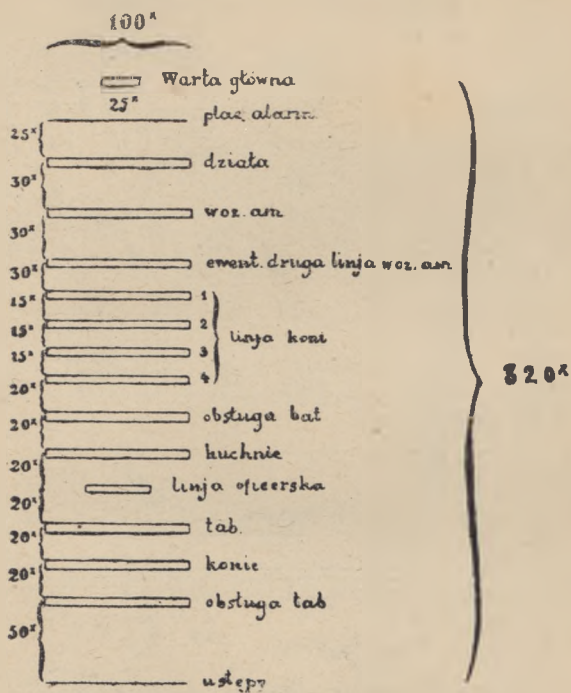 100ˣ
Warta główna
25ˣ
plac alarm.
25ˣ
działa
30ˣ
woz. am
30ˣ
ewent. druga linja woz. am
30ˣ
1
15ˣ
2
15ˣ
linja koni
3
15ˣ
4
320ˣ
20ˣ
obsługa bat
20ˣ
kuchnie
20ˣ
linja oficerska
20ˣ
tab.
20ˣ
konie
20ˣ
obsługa tab
50ˣ
ustępy